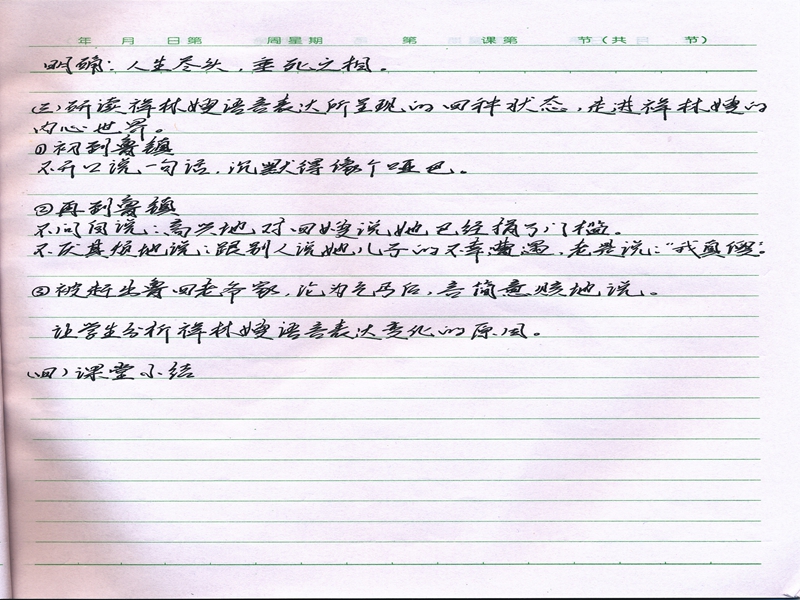 年 月 日第 周星期 第 课第 节(共 节)
明确：人生尽头，垂死之相。
(三)研读祥林嫂语言表达所呈现的四种状态，走进祥林嫂的
内心世界。
①初到鲁镇
不开口说一句话，沉默得像个哑巴。
②再到鲁镇
不问自说：高兴地对四婶说她已经捐了门槛。
不厌其烦地说：跟别人说她儿子的不幸遭遇，老是说："我真傻"。
③被赶出鲁四老爷家，沦为乞丐后，言简意赅地说。
让学生分析祥林嫂语言表达变化的原因。
(四)课堂小结